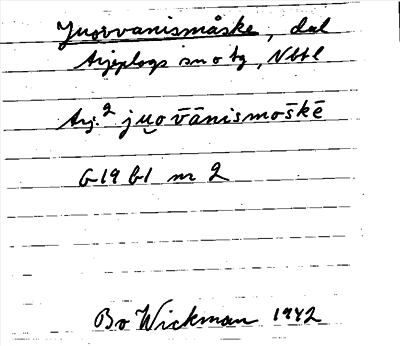 Juorvanismåske, dal
Arjeplogs sn o tg, Nbtl
Arj.2 juo̯v̄ānismoškē
G19 b1 nr 2
Bo Wickman 1942